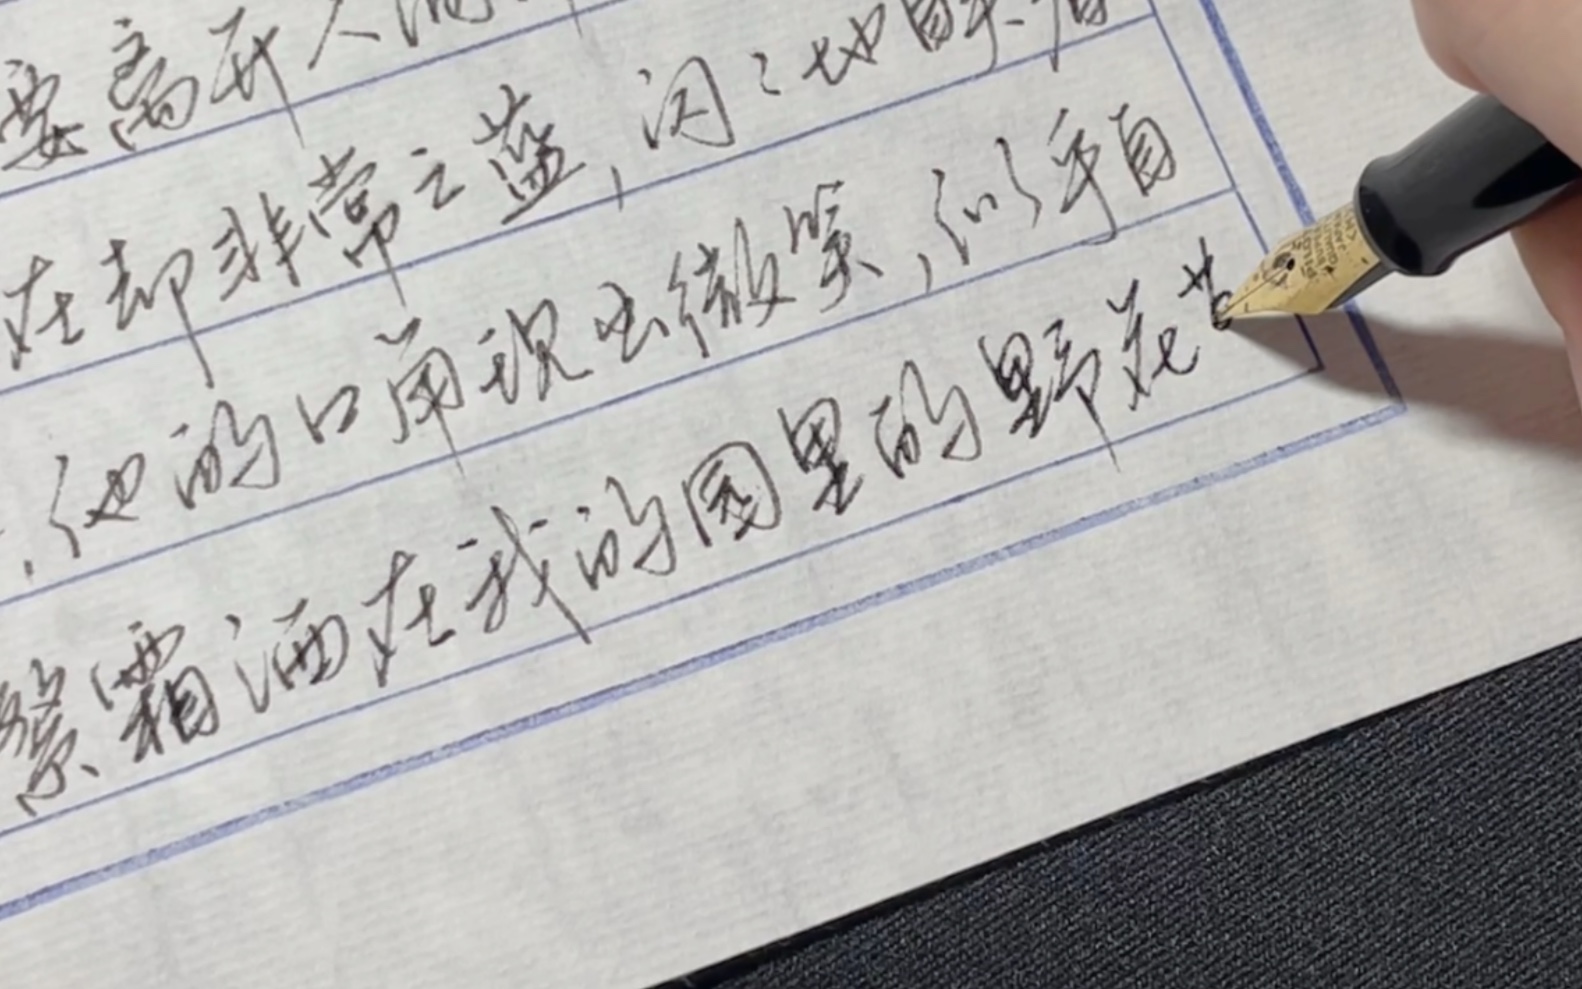 要离开人
在却非常之蓝，闪々地䀹着
，他的口角现出微笑，似乎自
繁霜洒在我的园里的野花